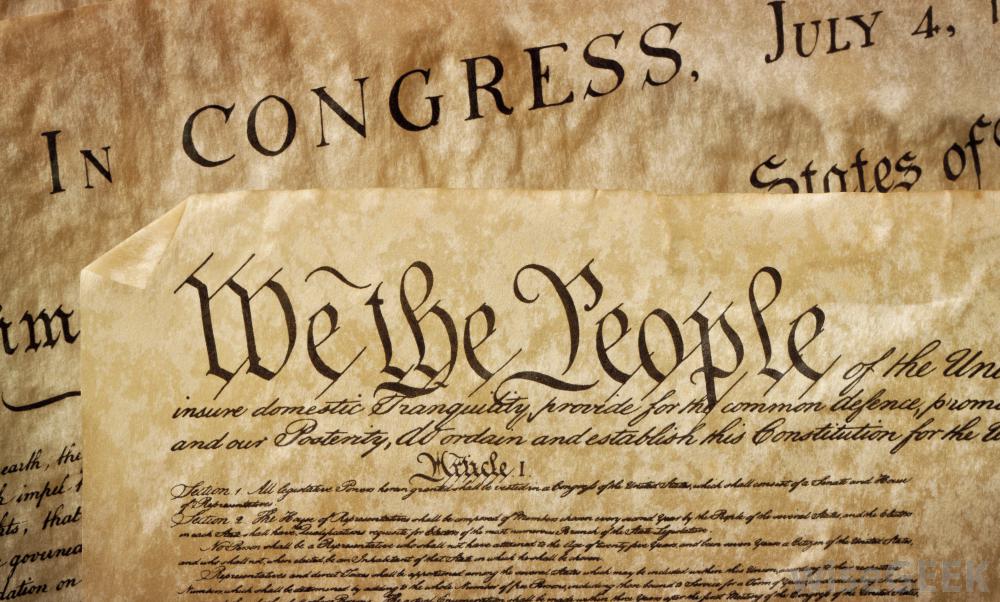 In CONGRESS, July 4,
States of
We the People of the Uni
insure domestic Tranquility, provide for the common defence, promo
and our Posterity, do ordain and establish this Constitution for the U
Article I
Section 1 All legislative Powers herein granted shall be vested in a Congress of the United States, which shall consist of a Senate and House
of Representatives
Section 2. The House of Representatives shall be composed of Members chosen every second Year by the People of the several States, and the Electors
in each State shall have Qualifications requisite for Electors of the most numerous Branch of the State Legislature.
No Person shall be a Representative who shall not have attained to the Age of twenty five Years, and been seven Years a Citizen of the United States,
and who shall not, when elected, be an Inhabitant of that State in which he shall be chosen.
Representatives and direct Taxes shall be apportioned among the several States which may be included within this Union, according to their respective
Numbers, which shall be determined by adding to the whole Number of free Persons, including those bound to Service for a Term of Years
earth, the
impel
that
governed
dation on
GEEK